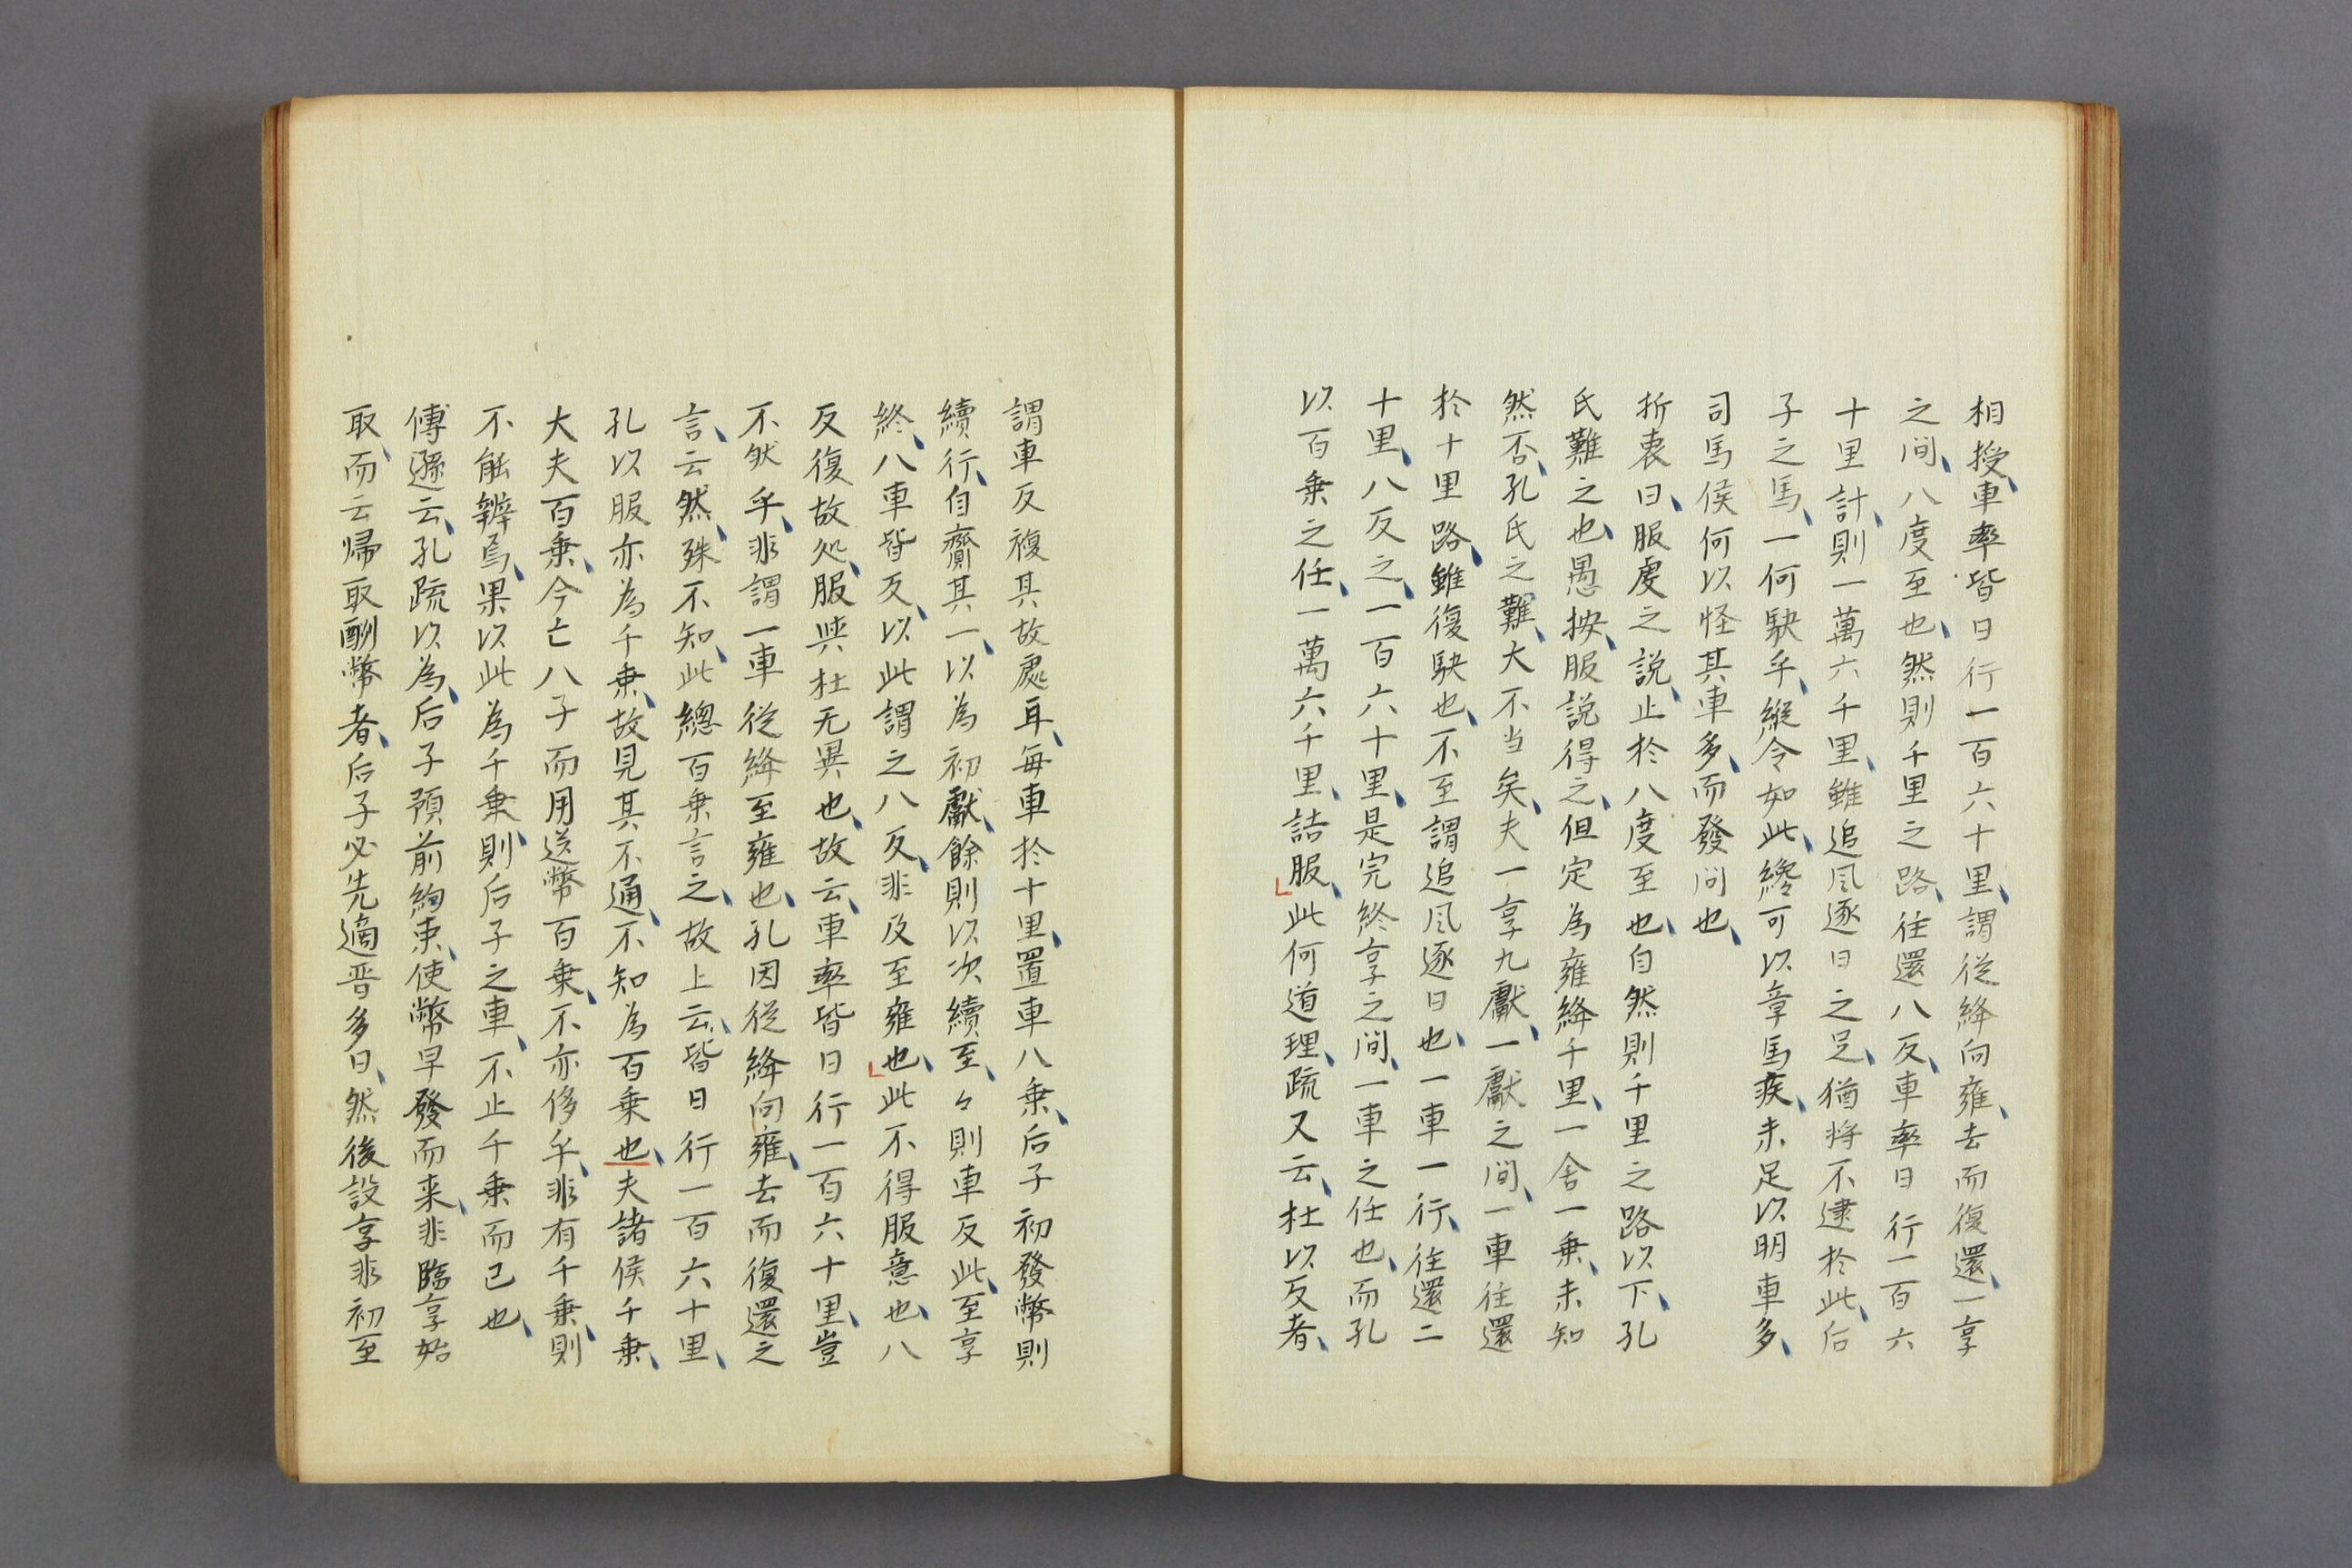 相授、車率皆日行一百六十里、謂従絳向雍、去而復還、一享
之间、八度至也、然則千里之路、往還八反、車率日行一百六
十里計、則一萬六千里、雖追風逐日之足、猶将不逮於此、后
子之馬、一何駃乎、縦令如此、纔可以章馬疾、未足以明車多、
司馬侯何以怪其車多、而發问也、
折衷曰、服虔之説、止於八度至也、自然則千里之路以下、孔
氏難之也、愚按、服説得之、但定為雍絳千里、一舎一乗、未知
然否、孔氏之難、大不当矣、夫一享九獻、一獻之间、一車往還
於十里路、雖復駃也、不至謂追風逐日也、一車一行、往還二
十里、八反之、一百六十里、是完終享之间、一車之任也、而孔
以百乗之任、一萬六千里、詰服、此何道理、疏又云、杜以反者、
謂車反複其故處耳、毎車於十里、置車八乗、后子初發幣則
續行、自齎其一、以為初獻、餘則以次續至、々則車反此、至享
終、八車皆反、以此謂之八反、非及至雍也、此不得服意也、八
反復故処、服與杜无異也、故云、車率皆日行一百六十里、豈
不然乎、非謂一車従絳至雍也、孔因従絳向雍、去而復還之
言、云然、殊不知、此總百乗言之、故上云、皆日行一百六十里、
孔以服亦為千乗、故見其不通、不知為百乗也、夫諸侯千乗、
大夫百乗、今亡八子而用送幣百乗、不亦侈乎、非有千乗、則
不能辨焉、果以此為千乗、則后子之車、不止千乗而已也、
傅遜云、孔疏以為、后子預前絢束、使幣早發而来、非臨享始
取、而云帰取酬幣者、后子必先適晋多日、然後設享、非初至